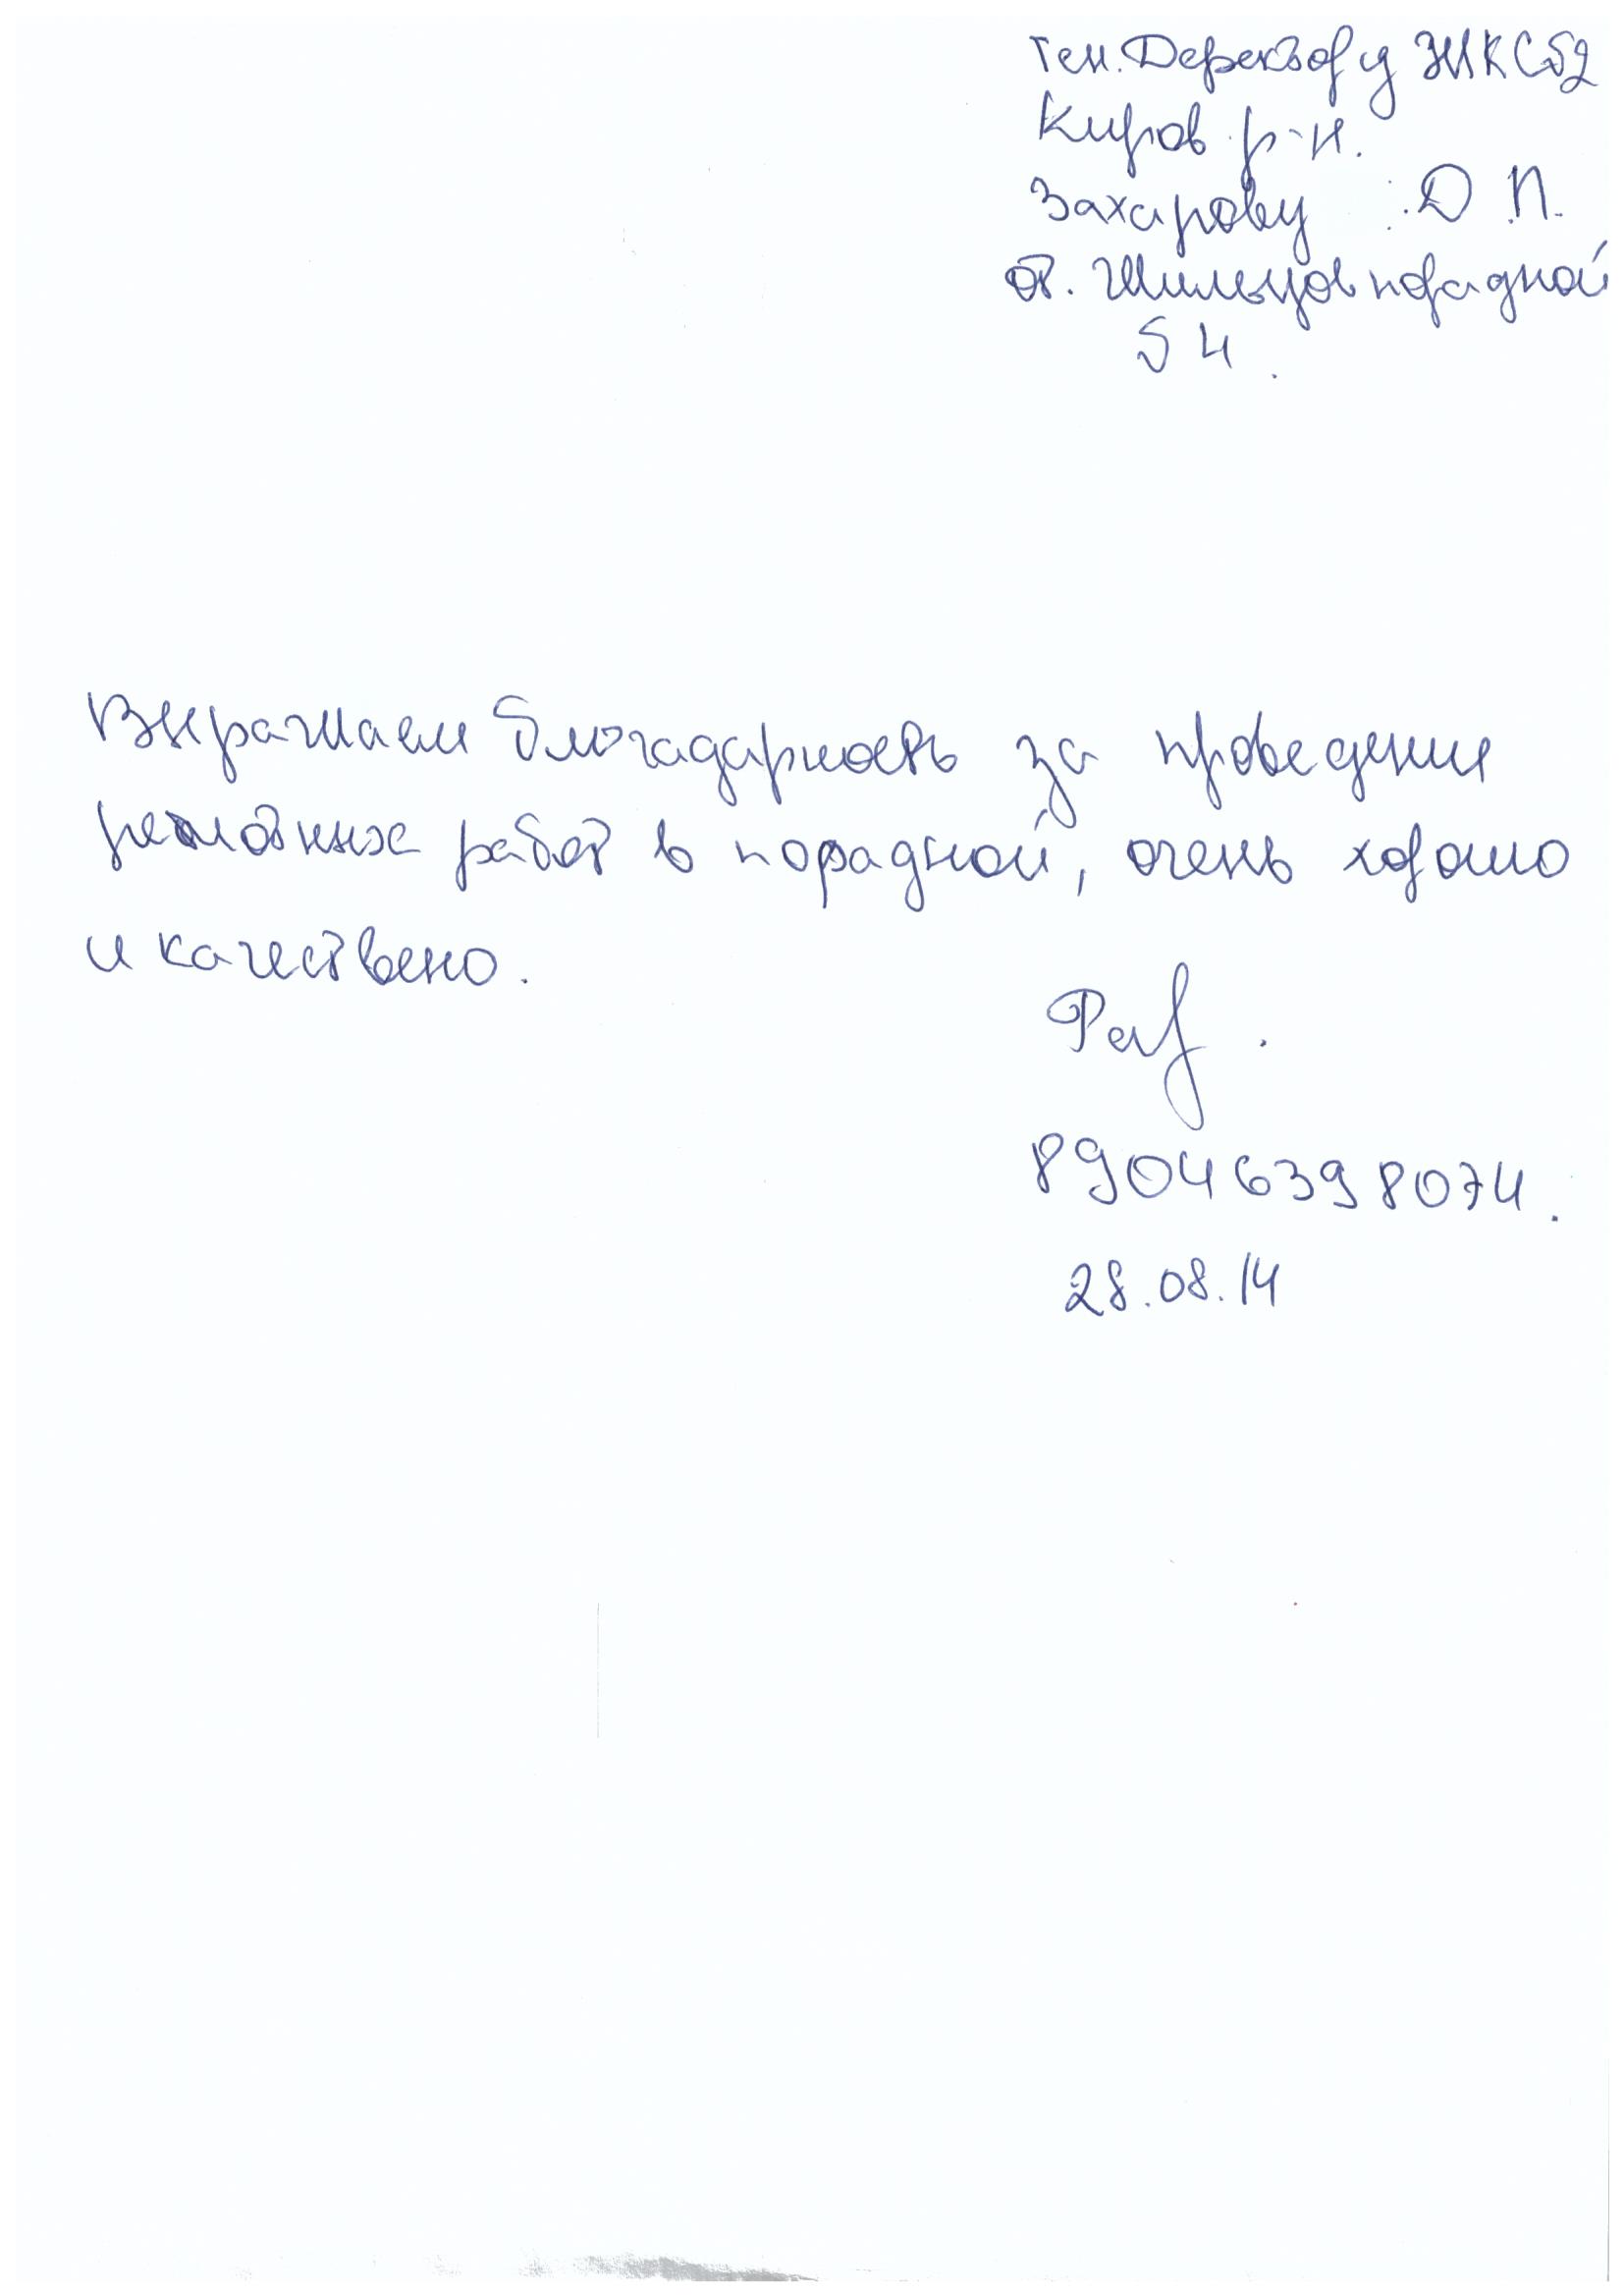 Ген. Деректору ЖКС №2
Киров. р-н.
Захарову Д П.
от. Жильцов порадной
№ 4.
Выражаем благодарность за проведение
ремотных работ в порадной, очень хорошо
и качествено.
89046398074.
28.08.14